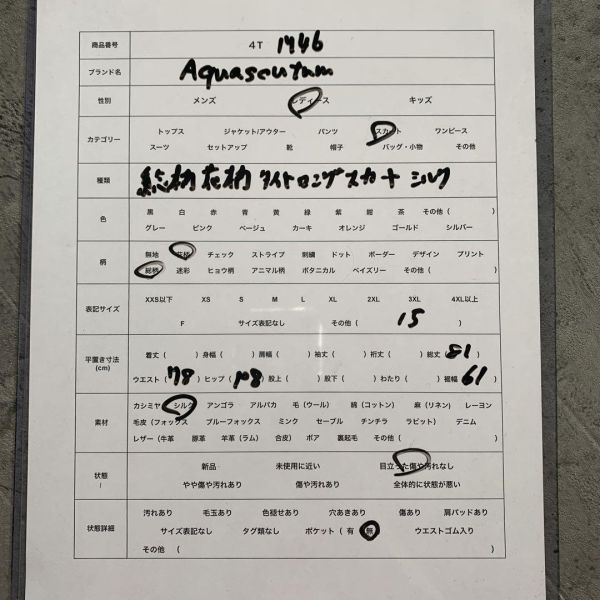 商品番号 4T 1446
ブランド名 Aquascutum
性別 メンズ レディース キッズ
カテゴリー トップス ジャケット/アウター パンツ スカート ワンピース
スーツ セットアップ 靴 帽子 バッグ・小物 その他
種類 総柄花柄タイトロングスカート シルク
色 黒 白 赤 青 黄 緑 紫 紺 茶 その他 ( )
グレー ピンク ベージュ カーキ オレンジ ゴールド シルバー
柄 無地 花柄 チェック ストライプ 刺繍 ドット ボーダー デザイン プリント
総柄 迷彩 ヒョウ柄 アニマル柄 ボタニカル ペイズリー その他 ( )
表記サイズ XXS以下 XS S M L XL 2XL 3XL 4XL以上
F サイズ表記なし その他 ( 15 )
平置き寸法 (cm) 着丈 ( ) 身幅 ( ) 肩幅 ( ) 袖丈 ( ) 裄丈 ( ) 総丈 ( 81 )
ウエスト ( 78 ) ヒップ ( 98 ) 股上 ( ) 股下 ( ) わたり ( ) 裾幅 ( 61 )
素材 カシミヤ シルク アンゴラ アルパカ 毛 (ウール) 綿 (コットン) 麻 (リネン) レーヨン
毛皮 (フォックス ブルーフォックス ミンク セーブル チンチラ ラビット) デニム
レザー (牛革 豚革 羊革 (ラム) 合皮) ボア 裏起毛 その他 ( )
状態 / 新品 未使用に近い 目立った傷や汚れなし
やや傷や汚れあり 傷や汚れあり 全体的に状態が悪い
状態詳細 汚れあり 毛玉あり 色褪せあり 穴あきあり 傷あり 肩パッドあり
サイズ表記なし タグ類なし ポケット ( 有 無 ) ウエストゴム入り
その他 (